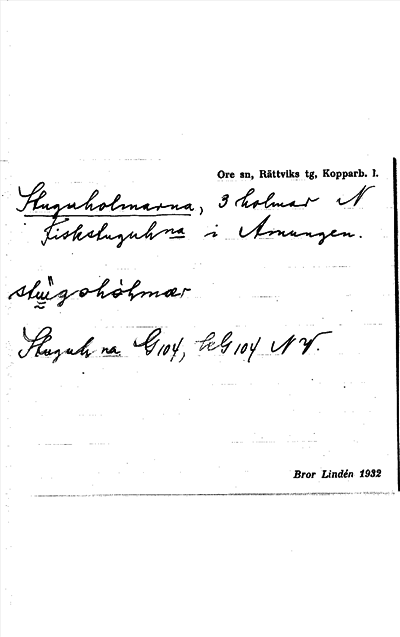 Ore sn, Rättviks tg, Kopparb. l.
Stuguholmarna, 3 holmar N
Fiskstuguhna i Amungen.
Stuguh na G104, G104 NV.
Bror Lindén 1932